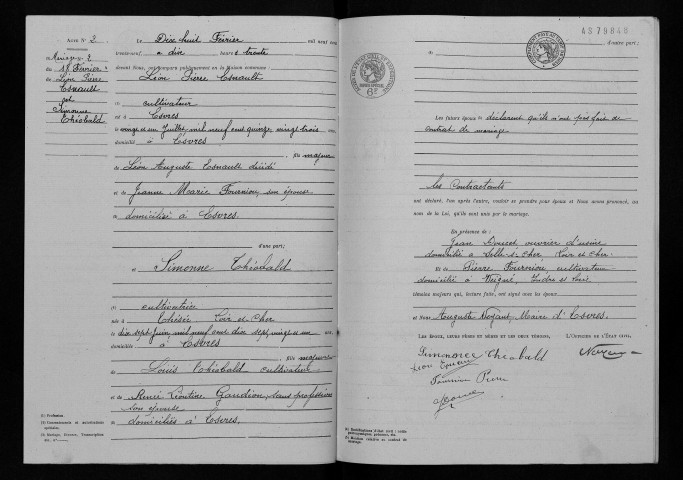 Acte N° 2
Mariage
du 18 Février
Léon Pierre
Esnault
et
Simonne
Théobald
Le Dix huit Février mil neuf cent
trente-neuf, à dix heures trente
devant Nous, ont comparu publiquement en la Maison commune :
Léon Pierre Esnault
(1) cultivateur
né à Esvres
le vingt et un Juillet mil neuf cent quinze, vingt trois ans,
domicilié à Esvres
, fils majeur
de Léon Auguste Esnault décédé
et de Jeanne Marie Fournion, son épouse
(2) domiciliée à Esvres.
d'une part ;
et Simonne Théobald
(1) cultivatrice
née à Thésée Loir-et-Cher
le dix sept Juin mil neuf cent dix sept, vingt et un ans,
domiciliée à Esvres
, fille majeure
de Louis Théobald cultivateur
et de René Léontine Gaudion, sans profession
son épouse
(2) domiciliés à Esvres.
(1) Profession.
(2) Consentements et autorisations
de
d'autre part ;
6F
Les futurs époux déclarent qu'ils n'ont pas fait de
contrat de mariage
Les Contractants
ont déclaré, l'un après l'autre, vouloir se prendre pour époux et Nous avons prononcé, au
nom de la Loi, qu'ils sont unis par le mariage.
En présence de
Jean Doucet ouvrier d'usine
domicilié à Selle-s-Cher Loir et Cher
Et de Pierre Fournion, cultivateur
domicilié à Veigné, Indre et Loire.
témoins majeurs qui, lecture faite, ont signé avec les époux
et Nous Auguste Noyant Maire d'Esvres.
Les époux, leurs pères et mères et les deux témoins, L'Officier de l'État civil,
Simonne Théobald
Léon Esnault
Fournion Pierre